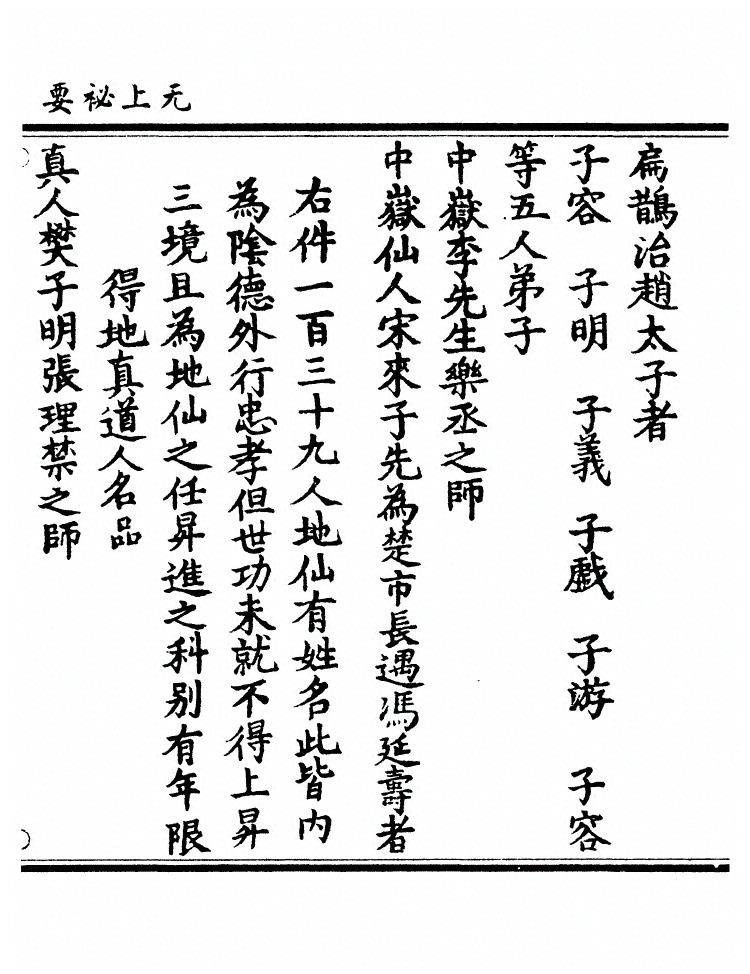 无上祕要
扁鵲治趙太子者
子容　子明　子義　子戲　子游　子容
等五人弟子
中嶽李先生樂丞之師
中嶽仙人宋來子先為楚市長遇馮延壽者
右件一百三十九人地仙有姓名此皆內
為陰德外行忠孝但世功未就不得上昇
三境且為地仙之任昇進之科別有年限
得地真道人名品
真人樊子明張理禁之師